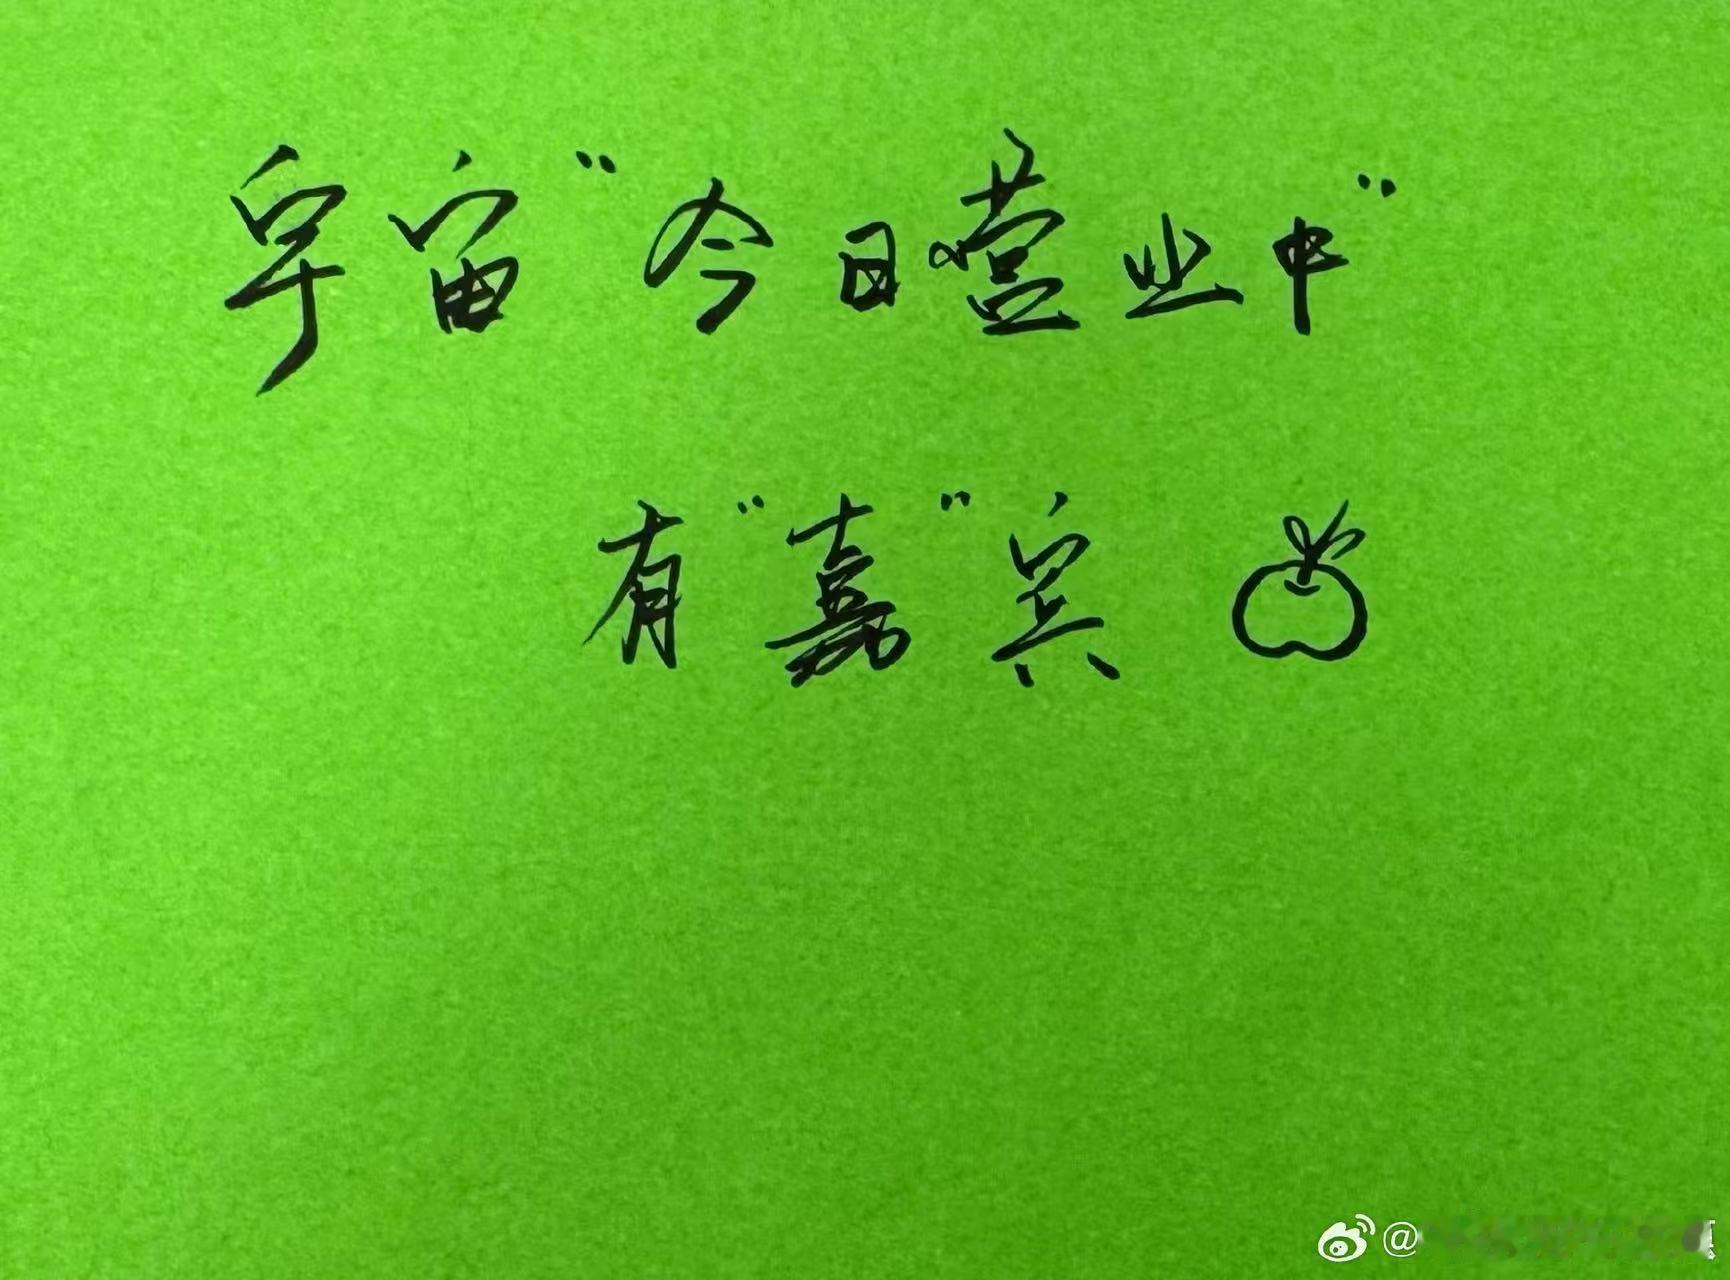 宇宙"今日营业中"
有"嘉"宾
@